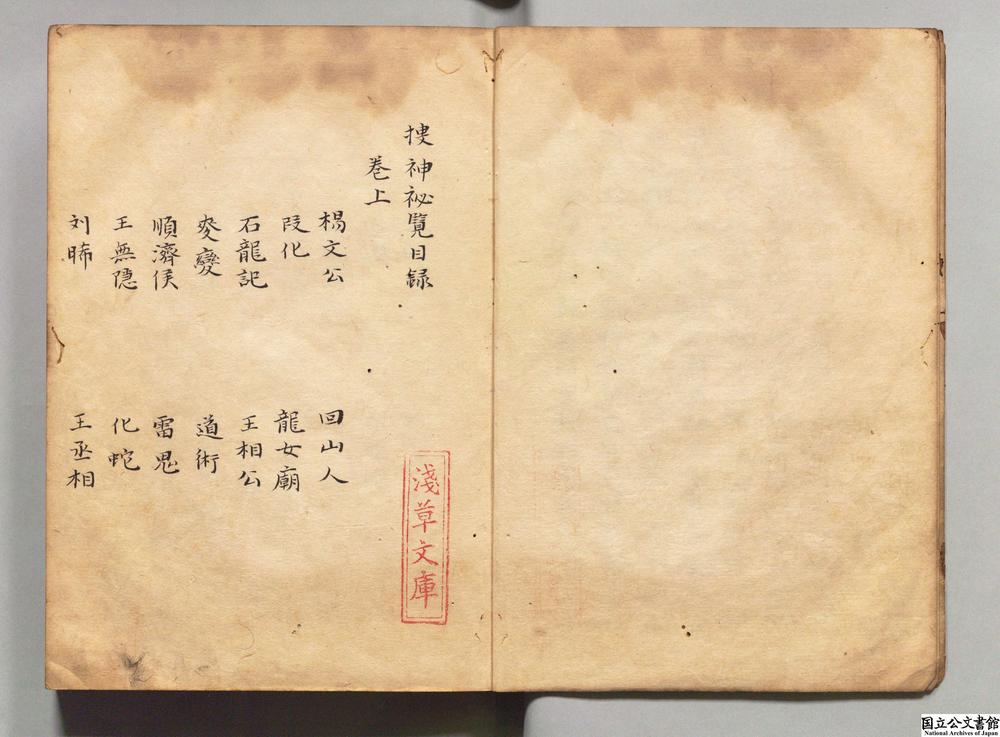 搜神祕覽目録
巻上
楊文公 回山人
段化 龍女廟
石龍記 王相公
変變 道術
順濟侯 雷鬼
王無隱 化蛇
刘晞 王丞相
淺草文庫
国立公文書館
National Archives of Japan